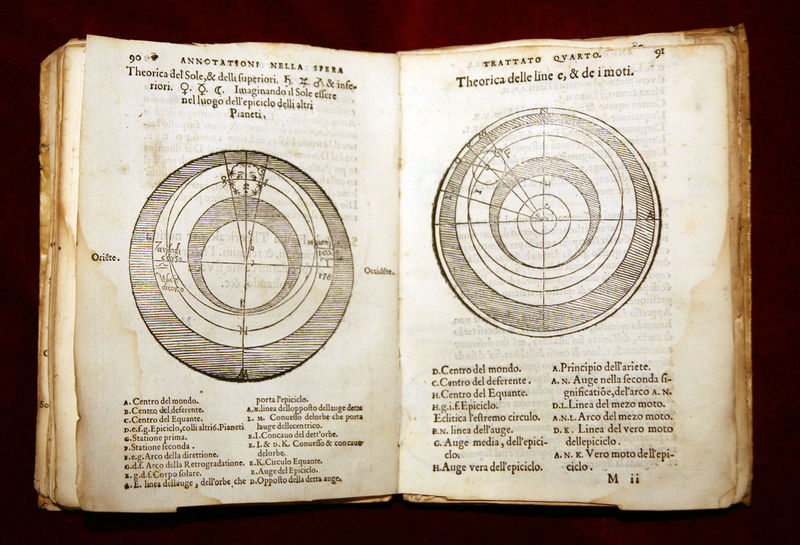 90 ANNOTATIONI NELLA SPERA
Theorica del Sole, & delli superiori. ♄ ♃ ♂ & infe-
riori. ♀. ☿. ☾. Imaginando il Sole essere
nel luogo dell'epiciclo delli altri
Pianeti.
Oriẽte.
Occidẽte.
A. Centro del mondo.
B. Centro del deferente.
C. Centro del Equante.
D.e.f.g. Epiciclo, colli altri s. Pianeti
G. Statione prima.
F. Statione seconda.
F.e.g. Arco della direttione.
G.d.f. Arco della Retrogradatione.
E.g.d.f. Corpo solare.
A.E. linea dellauge, dell'orbe, che
porta l'epiciclo.
A.N. linea dell'opposto dellauge detta
L. M. Conuesso delorbe che porta
lauge dellecentrico.
E.I. Concauo del dett'orbe.
E. I. & D. K. Conuesso & concauo
delorbe.
E.K. Circulo Equante.
E. Auge del Epiciclo.
D. Opposto della detta auge.
TRATTATO QVARTO. 91
Theorica delle line e, & de i moti.
D. Centro del mondo.
C. Centro del deferente.
H. Centro del Equante.
H.g.i.f. Epiciclo.
Eclitica l'estremo circulo.
B.N. linea dell'auge.
G. Auge media, dell'epici-
clo.
H. Auge vera dell'epiciclo.
A. Principio dell'ariete.
A. N. Auge nella seconda si-
gnificatiõe, del'arco A. N.
D.L. Linea del mezo moto.
A.N.L. Arco del mezo moto.
D. K. Linea del vero moto
dellepiciclo.
A. N. K. Vero moto dell'epi-
ciclo.
M ii